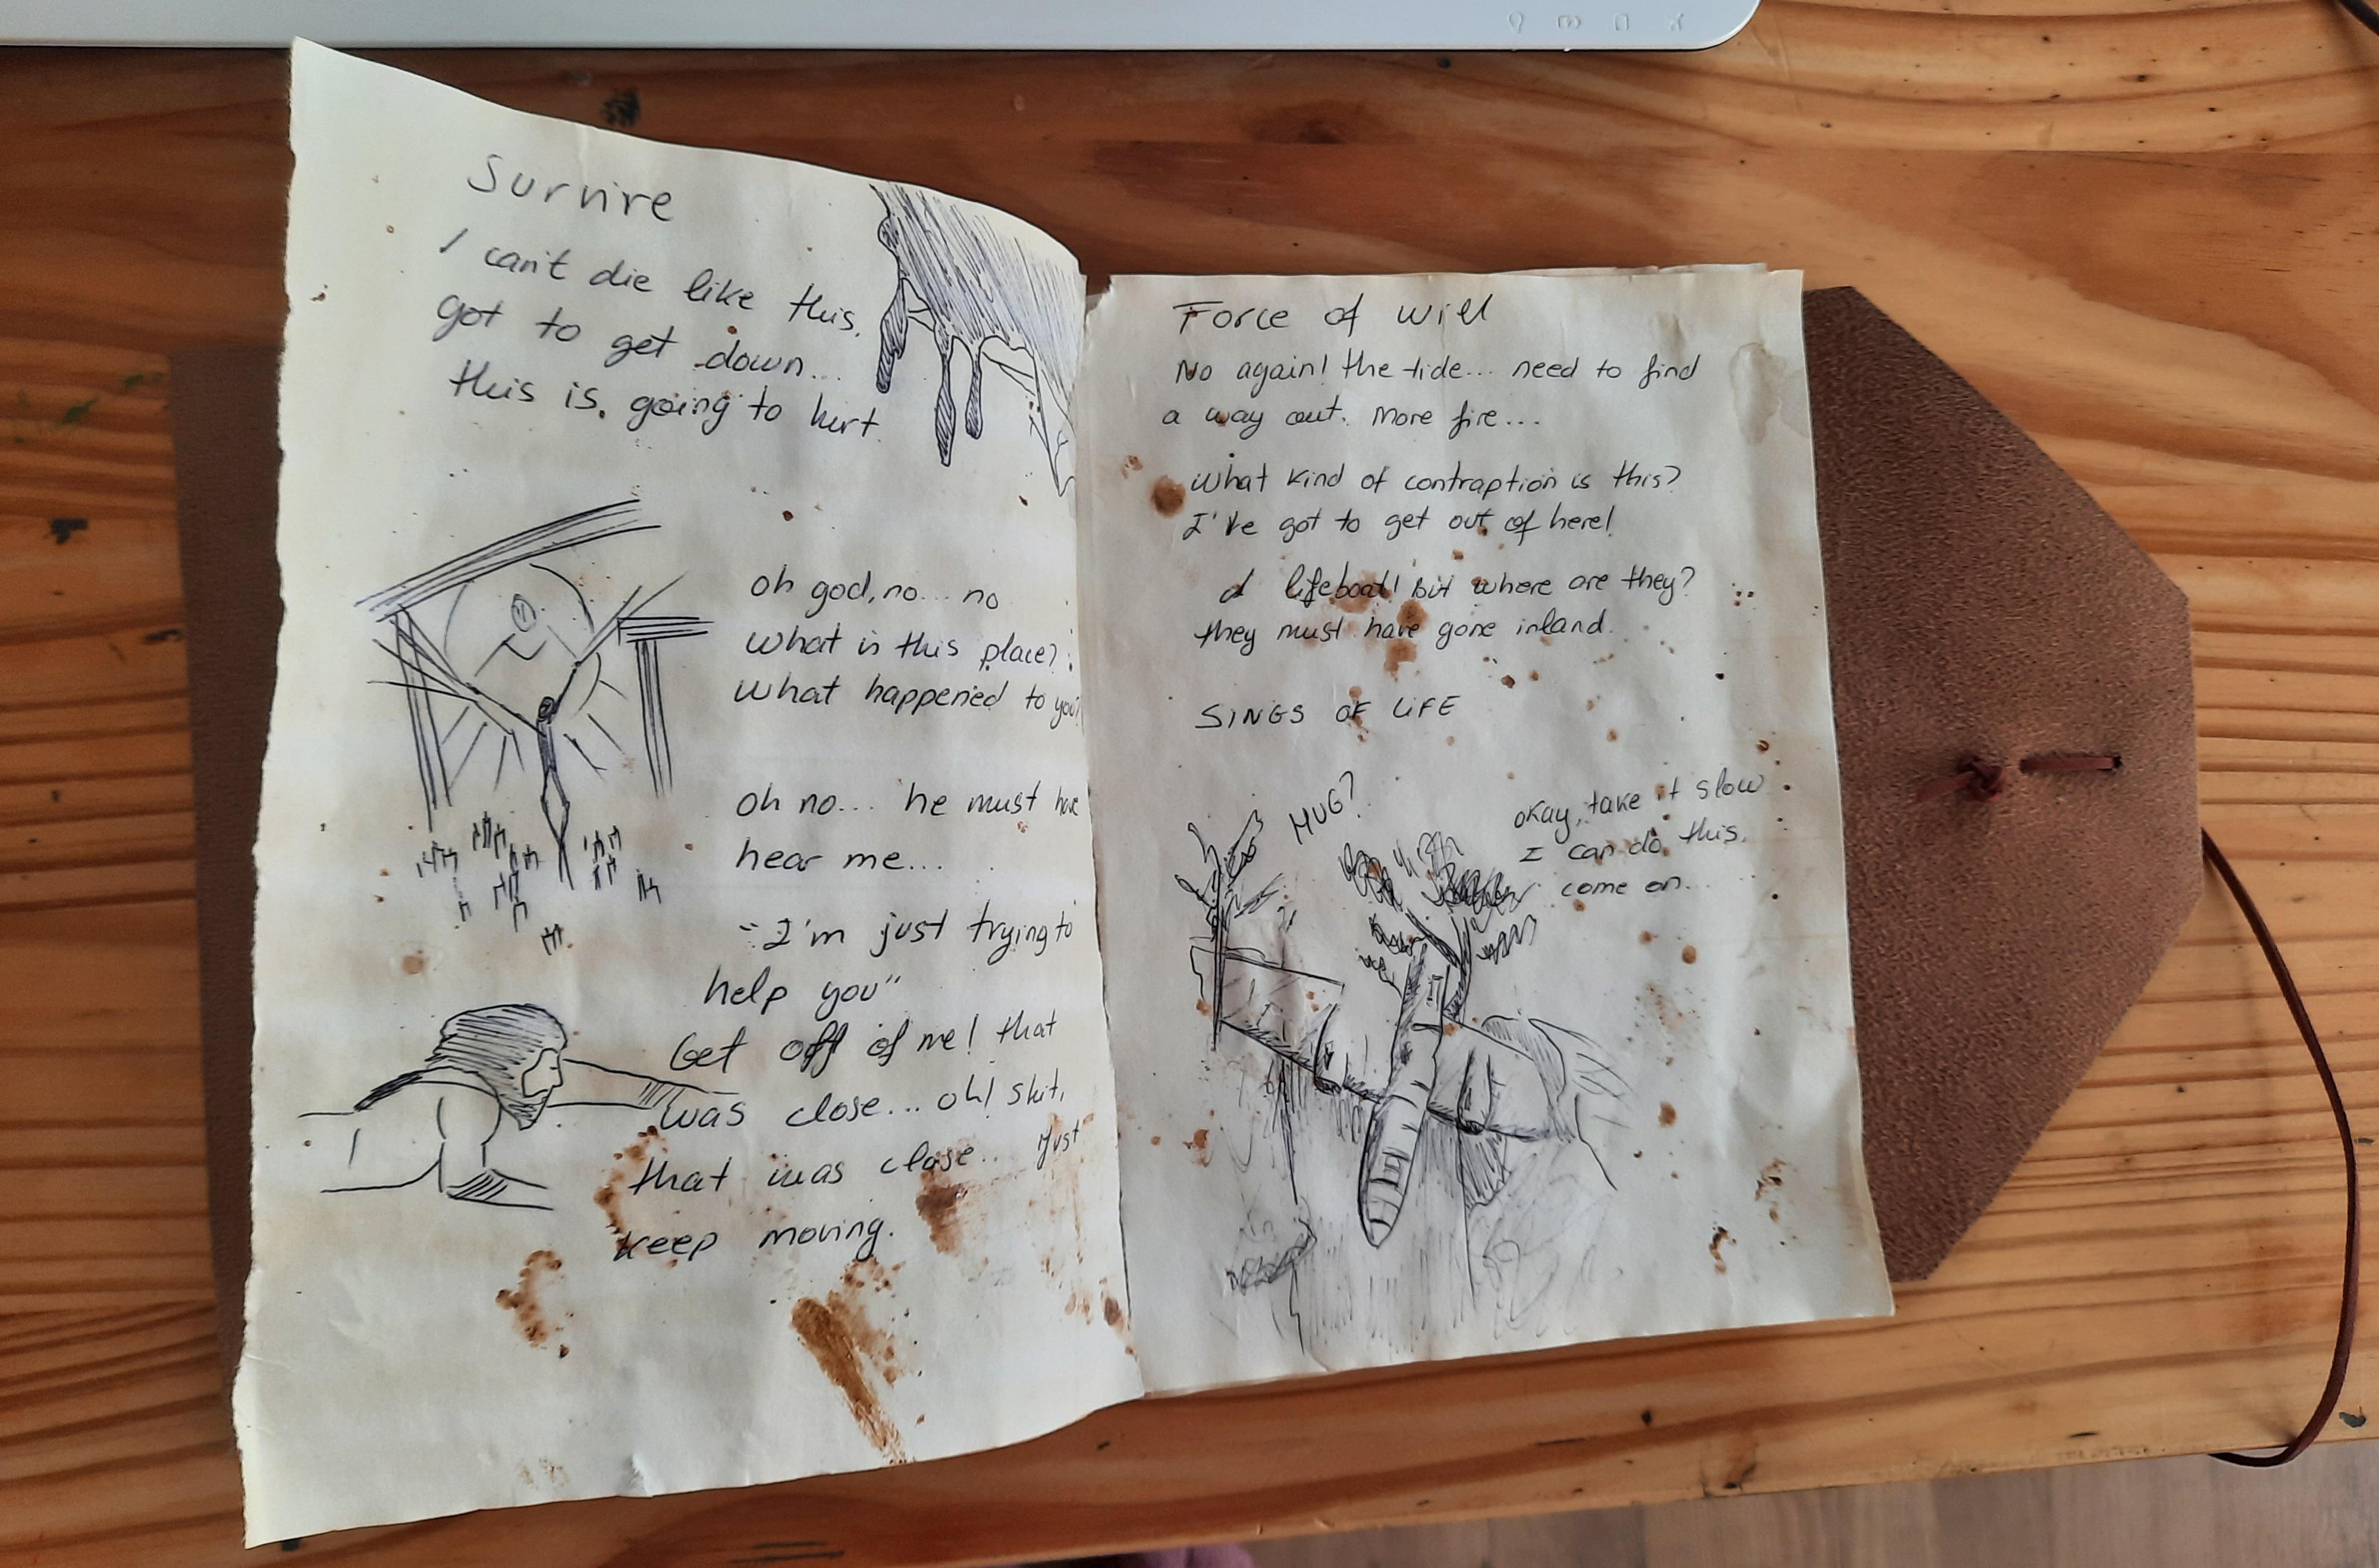 Survire
I can't die like this.
got to get down...
this is. going to hurt.
oh god, no... no
what is this place?
what happened to you?
oh no... he must have
hear me...
"I'm just trying to
help you"
Get off of me! that
was close... oh! shit,
that was close... just
keep moving.
Force of will
No again! the tide... need to find
a way out. More fire...
what kind of contraption is this?
I've got to get out of here!
A lifeboat! but where are they?
they must have gone inland.
SINGS OF LIFE
HUG?
okay, take it slow
I can do this.
come on...